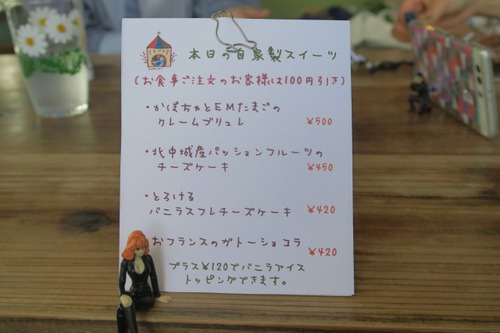 本日の自家製スイーツ
(お食事ご注文のお客様は100円引き)
・かぼちゃとEMたまごの
クレームブリュレ ¥500
・北中城産パッションフルーツの
チーズケーキ ¥450
・とろける
バニラスフレチーズケーキ ¥420
おフランスのガトーショコラ ¥420
プラス¥120でバニラアイス
トッピングできます。